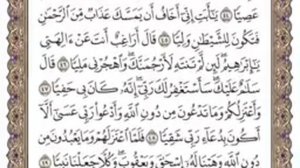 عَصِيًّا ٤٤ يَٰٓأَبَتِ إِنِّيٓ أَخَافُ أَن يَمَسَّكَ عَذَابٌ مِّنَ ٱلرَّحْمَٰنِ
فَتَكُونَ لِلشَّيْطَٰنِ وَلِيًّا ٤٥ قَالَ أَرَاغِبٌ أَنتَ عَنْ ءَالِهَتِى
يَٰٓإِبْرَٰهِيمُ لَئِن لَّمْ تَنتَهِ لَأَرْجُمَنَّكَ وَٱهْجُرْنِى مَلِيًّا ٤٦ قَالَ
سَلَٰمٌ عَلَيْكَ سَأَسْتَغْفِرُ لَكَ رَبِّىٓ إِنَّهُۥ كَانَ بِى حَفِيًّا ٤٧
وَأَعْتَزِلُكُمْ وَمَا تَدْعُونَ مِن دُونِ ٱللَّهِ وَأَدْعُوا۟ رَبِّى عَسَىٰٓ أَلَّآ
أَكُونَ بِدُعَآءِ رَبِّى شَقِيًّا ٤٨ فَلَمَّا ٱعْتَزَلَهُمْ وَمَا يَعْبُدُونَ مِن
دُونِ ٱللَّهِ وَهَبْنَا لَهُۥٓ إِسْحَٰقَ وَيَعْقُوبَ وَكُلًّا جَعَلْنَا نَبِيًّا ٤٩